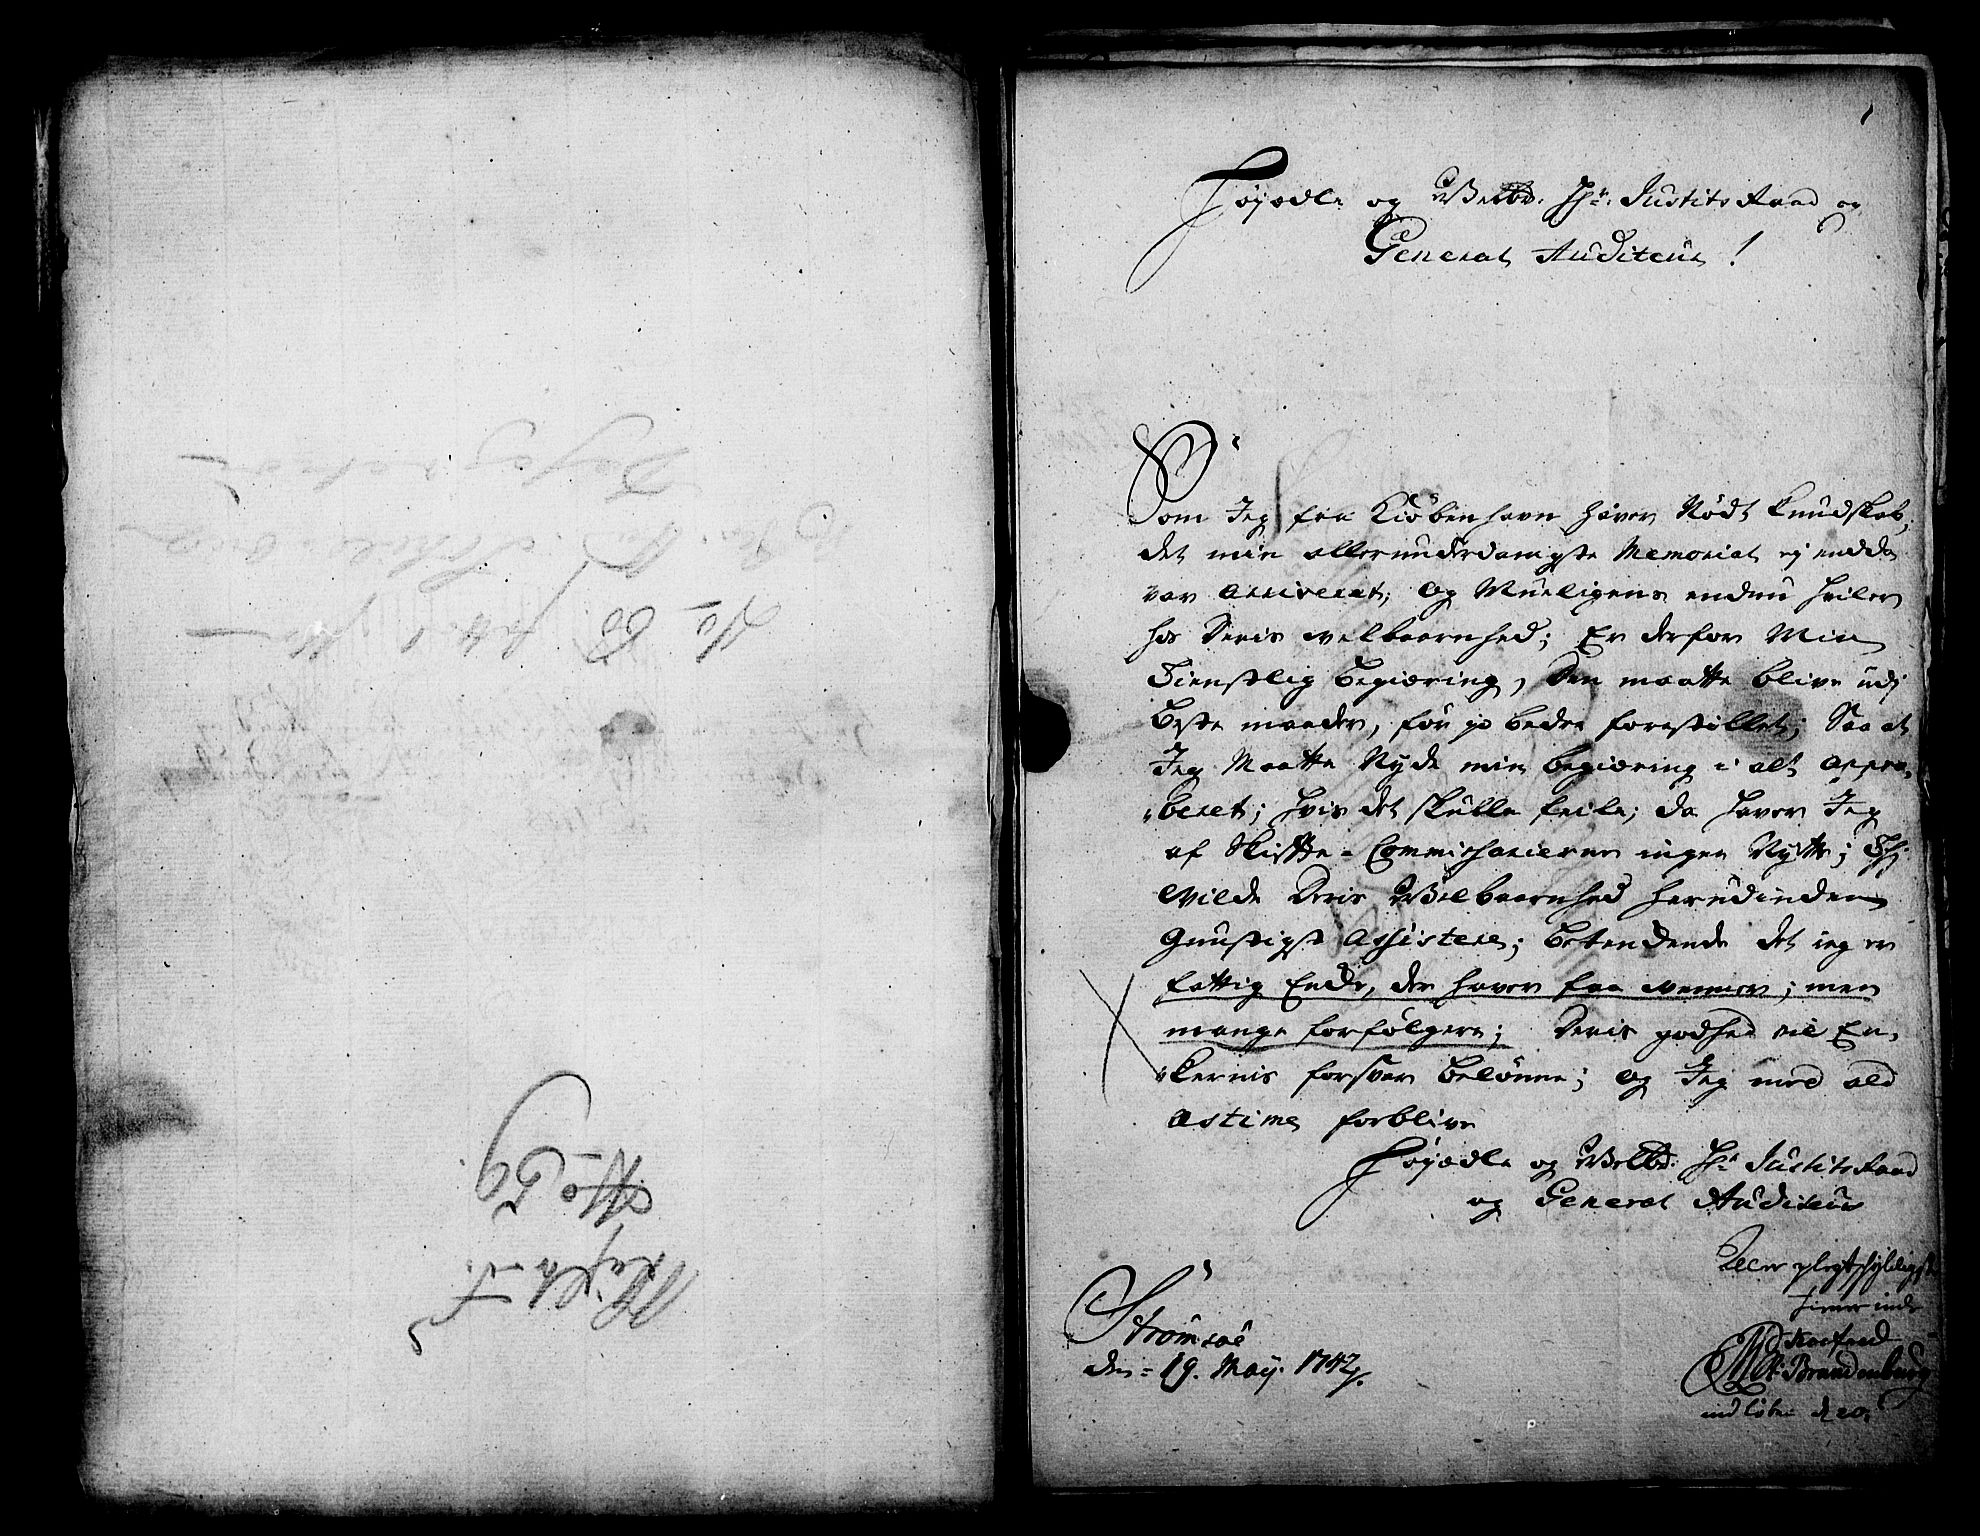 1
Høyædle og Welbr. Hr. Justits Raad og
General Auditeur!
Som Jeg fra Kiøbenhavn haver Nødt Kundskab,
det min allerunderdanigste Memorial ej endda
var arriveret; og Mueligens endnu hviler
hos Deris welbaarenhed; Er derfor Min
Tienstlig begiæring, den maatte blive udj
beste maader, før jo bedre forestillet; Saa at
Jeg Maatte Nyde min begiæring i alt appro-
beret; hvis det skulle feile; da haver Jeg
af Skifte-Commissarierne ingen Nytte;
Wilde Deris Welbaarenhed herudinden
Gunstigst assistere; betenckende det ieg er
fattig Encke, der haver faa wenner; men
mange forfølgere; Deris godhed vil En-
kernis forsvar belønne; og Jeg med ald
Estime forblive
Høyædle og Welbr. Hr. Justits Raad
og General Auditeur
pligtskyldigste
Tienerinde
Brandenburg
Strømsøe
den 19. May. 1742.
No 59.